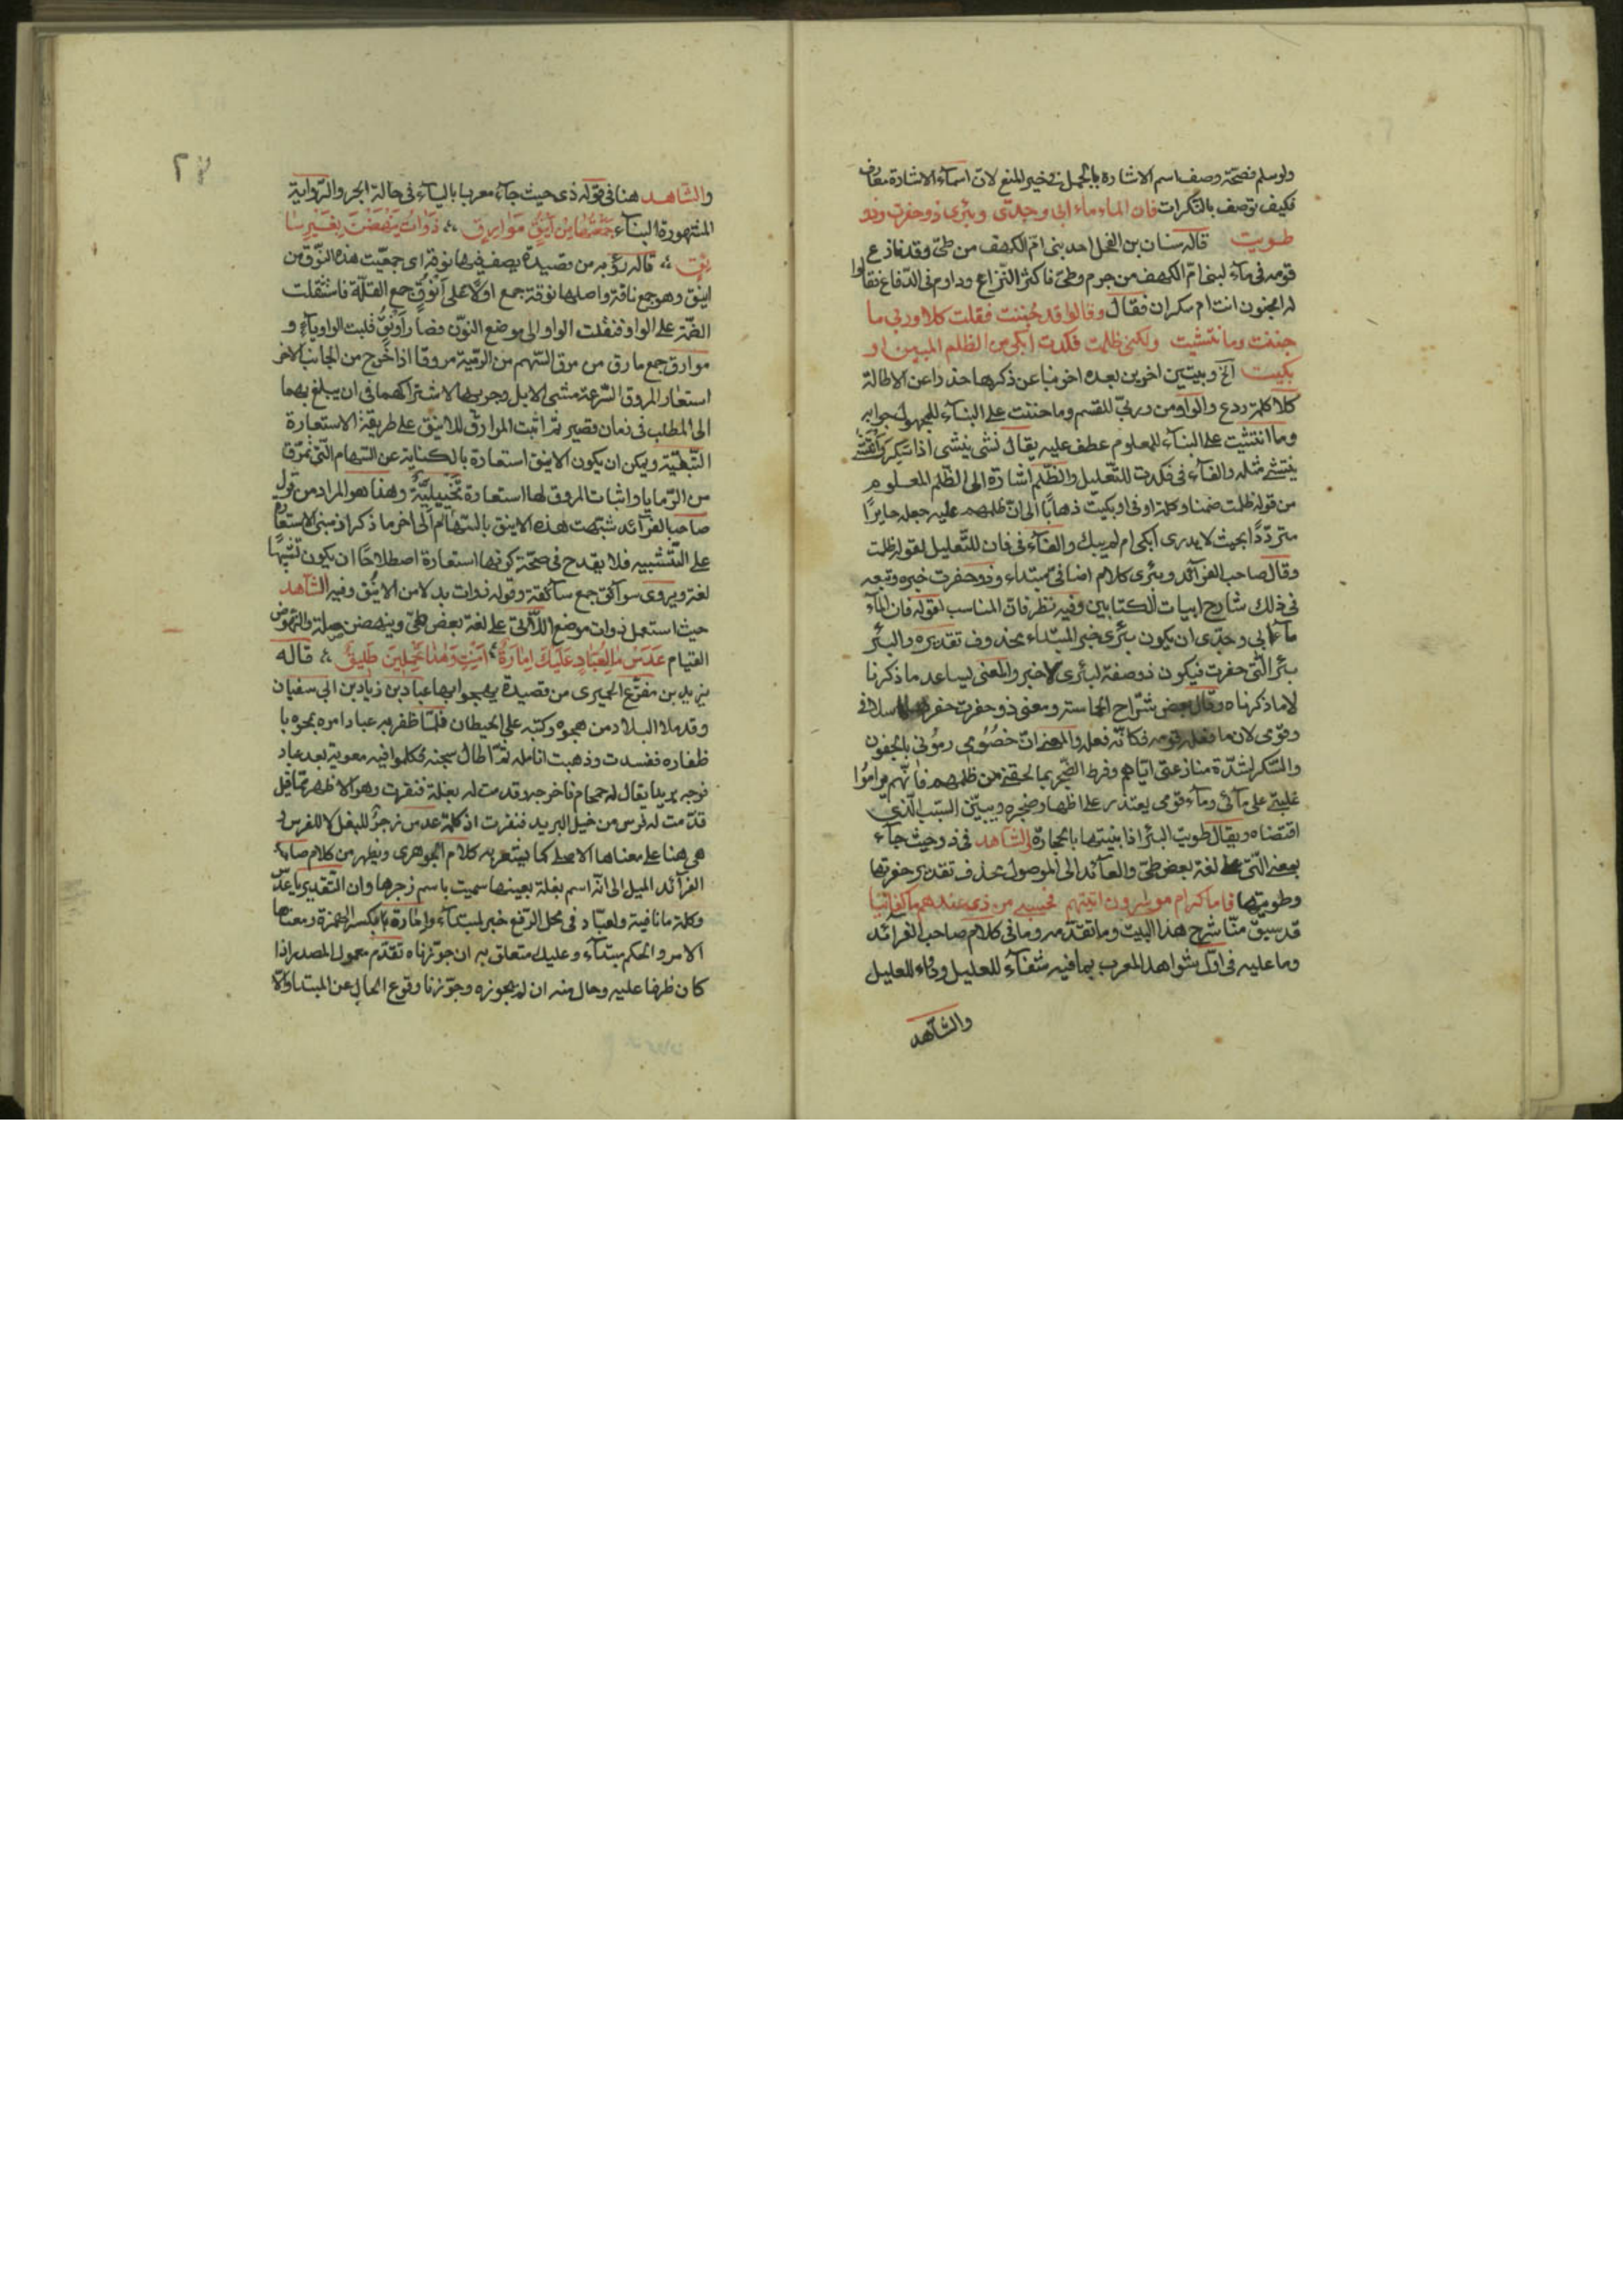 ولو سلم فصحة وصف اسم الاشارة بالجمل في خير المنع لان اسماء الاشارة معارف
فكيف توصف بالنكرات فان الماء ماء ابي وجدّي وبئري ذو حفرت وذو
طويت قاله سنان بن الفحل احد بني امّ الكهف من طيّ وقد نازع
قومه في ماء لبني امّ الكهف من جرم وطيّ فاكثر النّزاع وداوم في الدّفاع فقالوا
له امجنون انت ام سكران فقال وقالوا قد جُننت فقلت كلا وربي ما
جننت وما انتشيت ولكني ظلمت فكدت ابكي من الظلم المبين او
بكيت الخ وبيتين اخرين بعده اخر منا عن ذكرها حذرا عن الاطالة
كلا كلمة ردع والواو من وربيّ للقسم وما جننت على البناء للمجهول جوابه
وما انتشيت على البناء للمعلوم عطف عليه يقال نشى ينشى اذا سكر وانتشى
ينتشي مثله والفاء في فكدت للتّعليل والظّلم اشارة الى الظّلم المعلوم
من قوله ظلمت ضمنا وكلمة او في او بكيت ذهابًا الى انّ ظلمهم عليه جعله حايرًا
متردّدًا بحيث لا يدري ابكى ام لم يبك والفاء في فان للتّعليل لقوله ظلمت
وقال صاحب الفرائد وبئري كلام اضافيّ مبتداء وذو حفرت خبره وتبعه
في ذلك شارح ابيات الكتابين وفيه نظر فانّ المناسب لقوله فان الماء
ماء ابي وجدّي ان يكون بئري خبر المبتداء محذوف تقديره والبئر
بئر الّتي حفرت فيكون ذو صفة لبئري لا خبر والمعنى يساعد ما ذكرنا
لا ما ذكرناه وقال بعض شرّاح الحماسة ومعنى ذو حفرت حفرها
وقومي لان ما فعله قومه فكانّه فعله والمعنى انّ خصُومي رموُني بالجنون
والسّكر لشدّة منازعتي ايّاهم وفرط الضّجر بما لحقني من ظلمهم فانّهم راموُا
غلبتي على مائي وماء قومي يعتذر على اظهار ضجره ويبيّن السّبب الّذي
اقتضاه ويقال طويت البئر اذا بنيتها بالحجارة والشاهد في ذو حيث جاء
بمعنى الّتي على لغة بعض طيّ والعائد الى الموصول محذوف تقديره حفرتها
وطويتها فاما كرام موسرون اتيتهم فحسبي من ذي عندهم ما كفانيا
قد سبق منّا شرح هذا البيت وما تقدّمه وما في كلام صاحب الفرائد
وما عليه في اوّل شواهد المعرب بما فيه شفاء للعليل ورواء للغليل
والشاهد
والشّاهد هنا في قوله ذي حيث جاء معربا بالياء في حالة الجر والرّواية
المشهورة البناء جَمَعْتُهَا مِنْ اَيْنُقٍ مَوَارِقٍ ذَوَاتُ يَنْهَضْنَ بِغَيْرِ سَا
ئِقٍ قاله رؤبه من قصيدة يصف فيها نوقه اي جمعت هذه النّوق من
اينق وهو جمع ناقة واصلها نوقة جمع اوّلا على اَنْوُقٍ جمع القلّة فاستثقلت
الضمّة على الواو فنقلت الواو الى موضع النوّن فصار اَوْنُقٌ قلبت الواو ياء و
موارق جمع مارق من مرق السّهم من الرّمية مروقا اذا خرج من الجانب الاخر
استعار المروق السّرعة مشي الابل وجريها لاشتراكهما في ان يبلغ بهما
الى المطلب في زمان قصير ثم اثبت الموارق للاينق على طريقة الاستعارة
التّبعيّة ويمكن ان يكون الاينق استعارة بالكناية عن السّهام الّتي تمرق
من الرّمايا واثبات المروق لها استعارة تَخْييلِيَّةٌ وهذا هو المراد من قول
صاحب الفرائد شبّهت هذه الاينق بالسّهام الى اخر ما ذكر اذ مبنى الاستعارة
على التّشبيه فلا يقدح في صحّة كونها استعارة اصطلاحًا ان يكون تشبيهًا
لغة ويروى سوائق جمع سائقة وقوله ذوات بدلا من الاينُق وفيه الشّاهد
حيث استعمل ذوات موضع اللّاتي على لغة بعض طيّ وينهضن صلته والنّهوض
القيام عَدَسْ مَا لِعَبَّادٍ عَلَيْكَ اِمَارَةٌ اَمِنْتِ وَهٰذَا تَحْمِلِينَ طَلِيقٌ قاله
يزيد بن مفرّغ الحميري من قصيدة يهجو بها عباد بن زياد بن ابي سفيان
وقد ملا البلاد من هجوه وكتبه على الحيطان فلمّا ظفر به عباد امره بمحوه با
ظفاره ففسدت وذهبت انامله ثمّ اطال سجنه فكلموا فيه معوية بعد عباد
فوجه بريدا يقال له حمحام فاخرجه وقدمت له بغلة فنفرت وهو الاظهر ممّا قيل
قدّمت له فرس من خيل البريد فنفرت اذ كلمة عدس زجرٌ للبغل لا للفرس و
هي هنا على معناها الاصلي كما يشعر به كلام الجوهري ويظهر من كلام صاحب
الفرائد الميل الى انّه اسم بغلة بعينها سميت باسم زجرها وان التّقدير يا عدس
وكلمة ما نافية ولعبّاد في محل الرّفع خبر لمبتداء واِمارة بالكسر الهمزة ومعناها
الامر والحكم مبتداء وعليك متعلق به ان جوّزناه تقدّم معمول المصدر اذا
كان ظرفا عليه وحال منه ان لم نجوزه وجوّزنا وقوع الحال عن المبتدا والّا